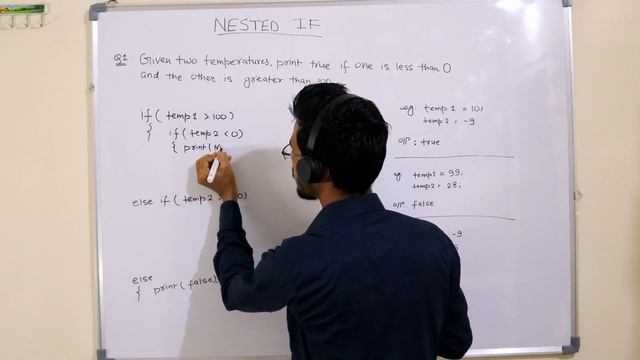 NESTED IF
Q1 Given two temperatures, print true if one is less than 0
and the other is greater than 100.
if ( temp1 > 100 )
{ if ( temp2 < 0 )
{ print (
else if ( temp2 > 0 )
else
{ print ( false ),
eg: temp1 = 101
temp2 = -9
O/P : true
eg: temp1 = 99;
temp2 = 28;
O/P: false
-9